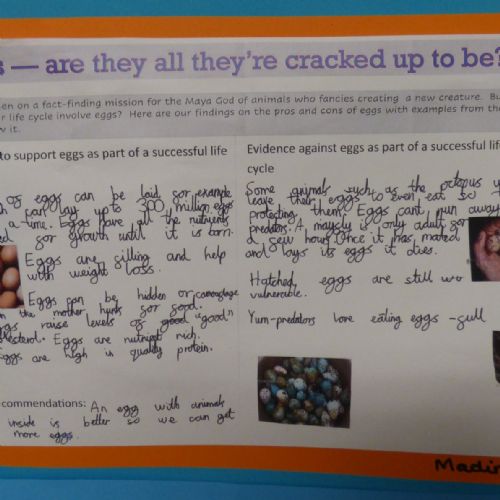 s — are they all they're cracked up to be?
en on a fact-finding mission for the Maya God of animals who fancies creating a new creature. Bu
r life cycle involve eggs? Here are our findings on the pros and cons of eggs with examples from the
w it.
to support eggs as part of a successful life
of eggs can be laid for example
can lay up to 300 million eggs
a time. Eggs have all the nutrients
for growth until it is born.
Eggs are filling and help
with weight loss.
Eggs can be hidden or camouflage
the mother hunts for food.
raise levels of good "good"
Eggs are nutrient rich.
Eggs are high in quality protein.
commendations: An egg with animals
inside is better so we can get
more eggs.
Evidence against eggs as part of a successful life
cycle
Some animals such as the octopus
leave their eggs to even eat so
protecting them. Eggs cant run away
predators. A mayfly is only adult for
a few hours. Once it has mated
and lays its eggs it dies.
Hatched eggs are still
vulnerable.
Yum-predators love eating eggs -
Madin